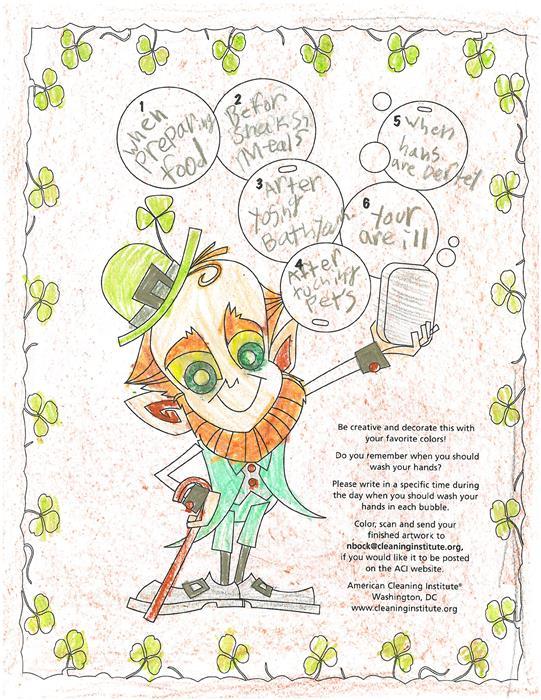 1
when
preparing
food
2
Befor
Snacks
Meals
3
After
Bathroom
4
After
tuching
Pets
5 when
hans
are
6
your
are ill
Be creative and decorate this with
your favorite colors!
Do you remember when you should
wash your hands?
Please write in a specific time during
the day when you should wash your
hands in each bubble.
Color, scan and send your
finished artwork to
nbock@cleaninginstitute.org,
if you would like it to be posted
on the ACI website.
American Cleaning Institute®
Washington, DC
www.cleaninginstitute.org